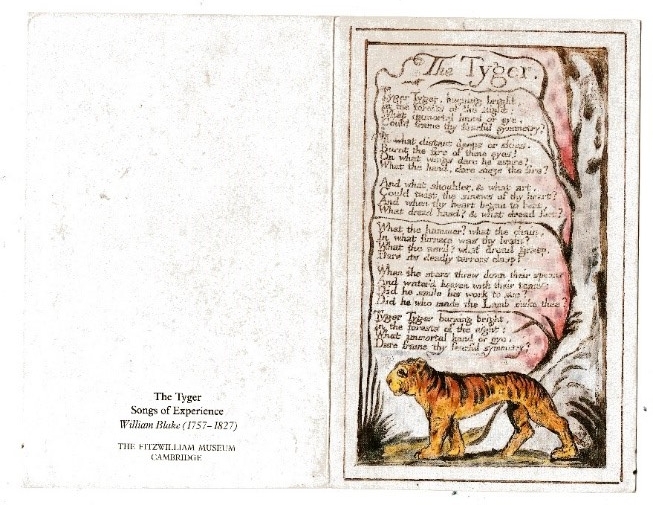 The Tyger
Songs of Experience
William Blake (1757–1827)
THE FITZWILLIAM MUSEUM
CAMBRIDGE
The Tyger.
Tyger Tyger, burning bright,
In the forests of the night:
What immortal hand or eye,
Could frame thy fearful symmetry?
In what distant deeps or skies.
Burnt the fire of thine eyes!
On what wings dare he aspire?
What the hand, dare sieze the fire?
And what shoulder, & what art,
Could twist the sinews of thy heart?
And when thy heart began to beat,
What dread hand? & what dread feet?
What the hammer? what the chain,
In what furnace was thy brain?
What the anvil? what dread grasp,
Dare its deadly terrors clasp!
When the stars threw down their spears
And water'd heaven with their tears:
Did he smile his work to see?
Did he who made the Lamb make thee?
Tyger Tyger burning bright,
In the forests of the night:
What immortal hand or eye,
Dare frame thy fearful symmetry?